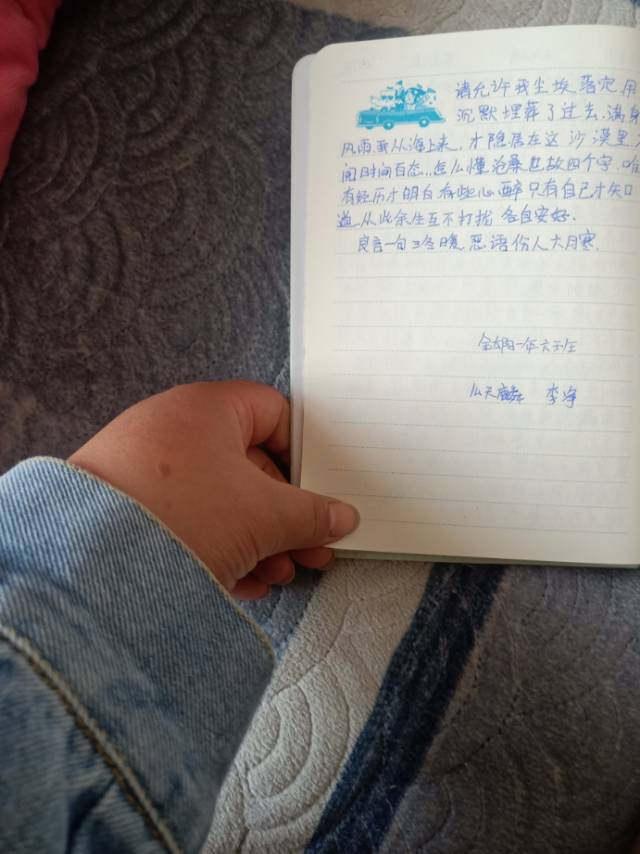 请允许我尘埃落定用
沉默埋葬了过去.满身
风雨我从海上来.才隐居在这沙漠里.
间百态.怎么懂沧桑世故四个字.唯
有经历才明白有些心酸只有自己才知
道.从此余生互不打扰各自安好.
良言一句三冬暖.恶语伤人六月寒.
一年六班
么天麟 李净